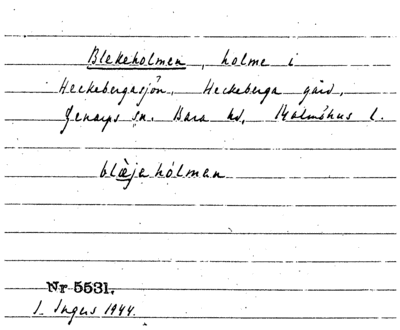 Blekeholmen, holme i
Heckebergasjön, Heckeberga gård,
Genarps sn. Bara hd, Malmöhus l.
blèjahólman
Nr 5531.
I. Ingers 1944.